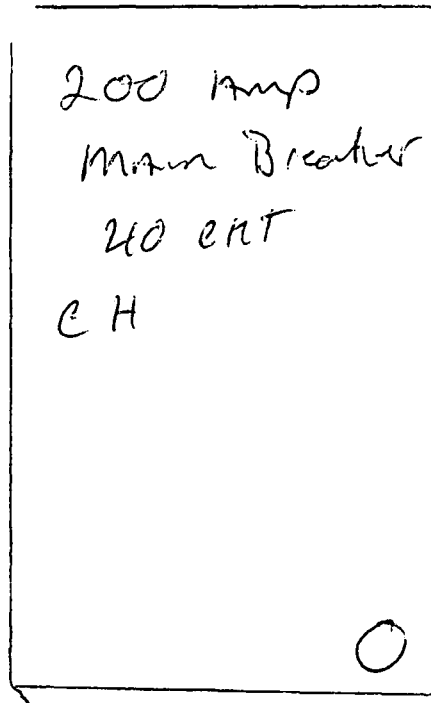 200 Amp
Main Breaker
40 CKT
CH